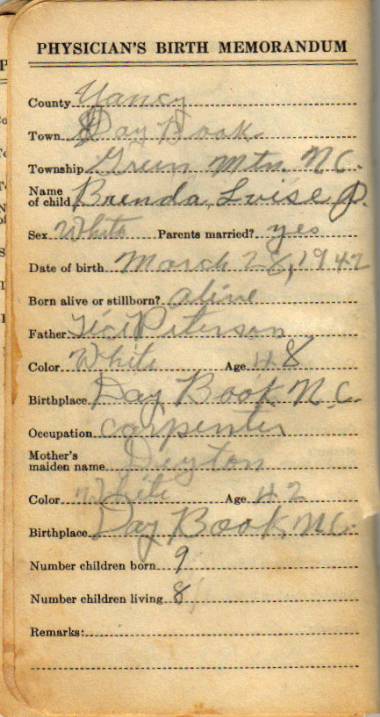 PHYSICIAN'S BIRTH MEMORANDUM
County Yancy
Town Day Book
Township Green Mtn. N.C.
Name of child Brenda Loise P.
Sex White Parents married? yes
Date of birth March 26, 1942
Born alive or stillborn? alive
Father Peterson
Color White Age 48
Birthplace Day Book N.C.
Occupation Carpenter
Mother's maiden name Deyton
Color White Age 42
Birthplace Day Book, N.C.
Number children born 9
Number children living 8
Remarks: